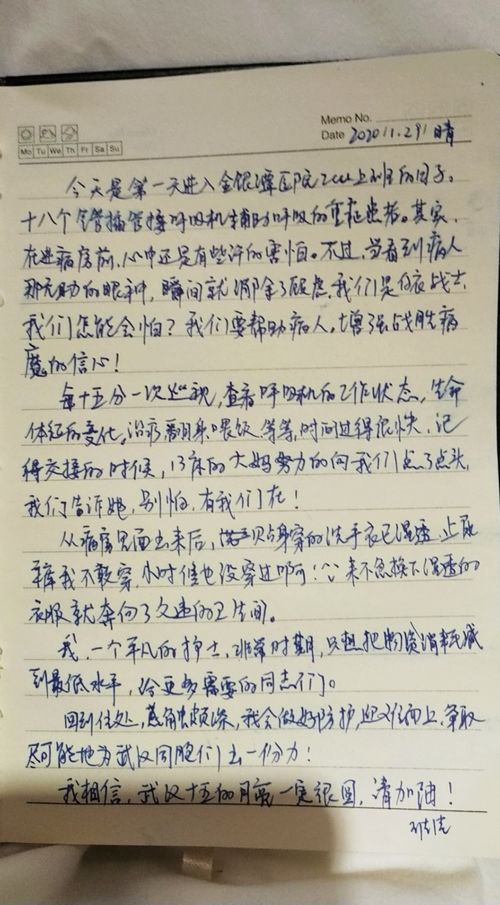 Memo No.
Mo Tu We Th Fr Sa Su
Date 2020/1.29/ 晴
今天是第一天进入金银潭医院ICU上班的日子。
十八个气管插管接呼吸机辅助呼吸的重症患者。其实,
在进病房前,心中还是有些许的害怕。不过,当看到病人
那无助的眼神,瞬间就消除了顾虑,我们是白衣战士,
我们怎能会怕?我们要帮助病人,增强战胜病
魔的信心!
每十五分一次巡视,查看呼吸机的工作状态,生命
体征的变化,治疗翻身喂饭等等,时间过得很快,记
得交接的时候,13床的大妈努力的向我们点了点头,
我们告诉她,别怕,有我们在!
从病房里面出来后,贴身穿的洗手衣已湿透,
裤我不敢穿,小时候也没穿过啊!来不急换下湿透的
衣服就奔向了久违的卫生间。
我,一个平凡的护士,非常时期,只想把物资消耗减
到最低水平,给更多需要的同志们。
回到住处,感触颇深,我会做好防护,迎难而上,争取
尽可能地为武汉同胞们出一份力!
我相信,武汉十五的月亮一定很圆,请加油!